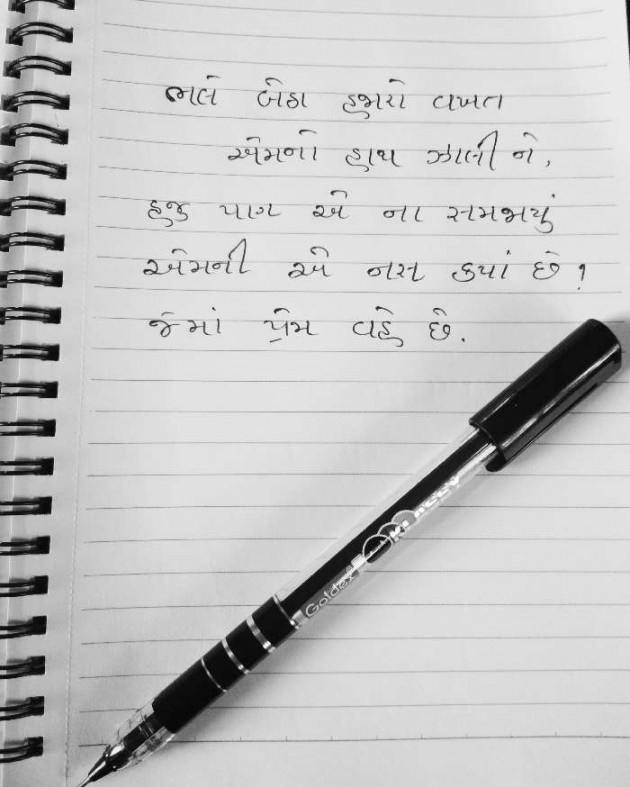 ભલે બેઠા હજારો વખત
એમનો હાથ ઝાલી ને,
હજુ પાણ એ ના સમજાયું
એમની એ નસ ક્યાં છે?
જેમાં પ્રેમ વહે છે.
Goldex KLASSY